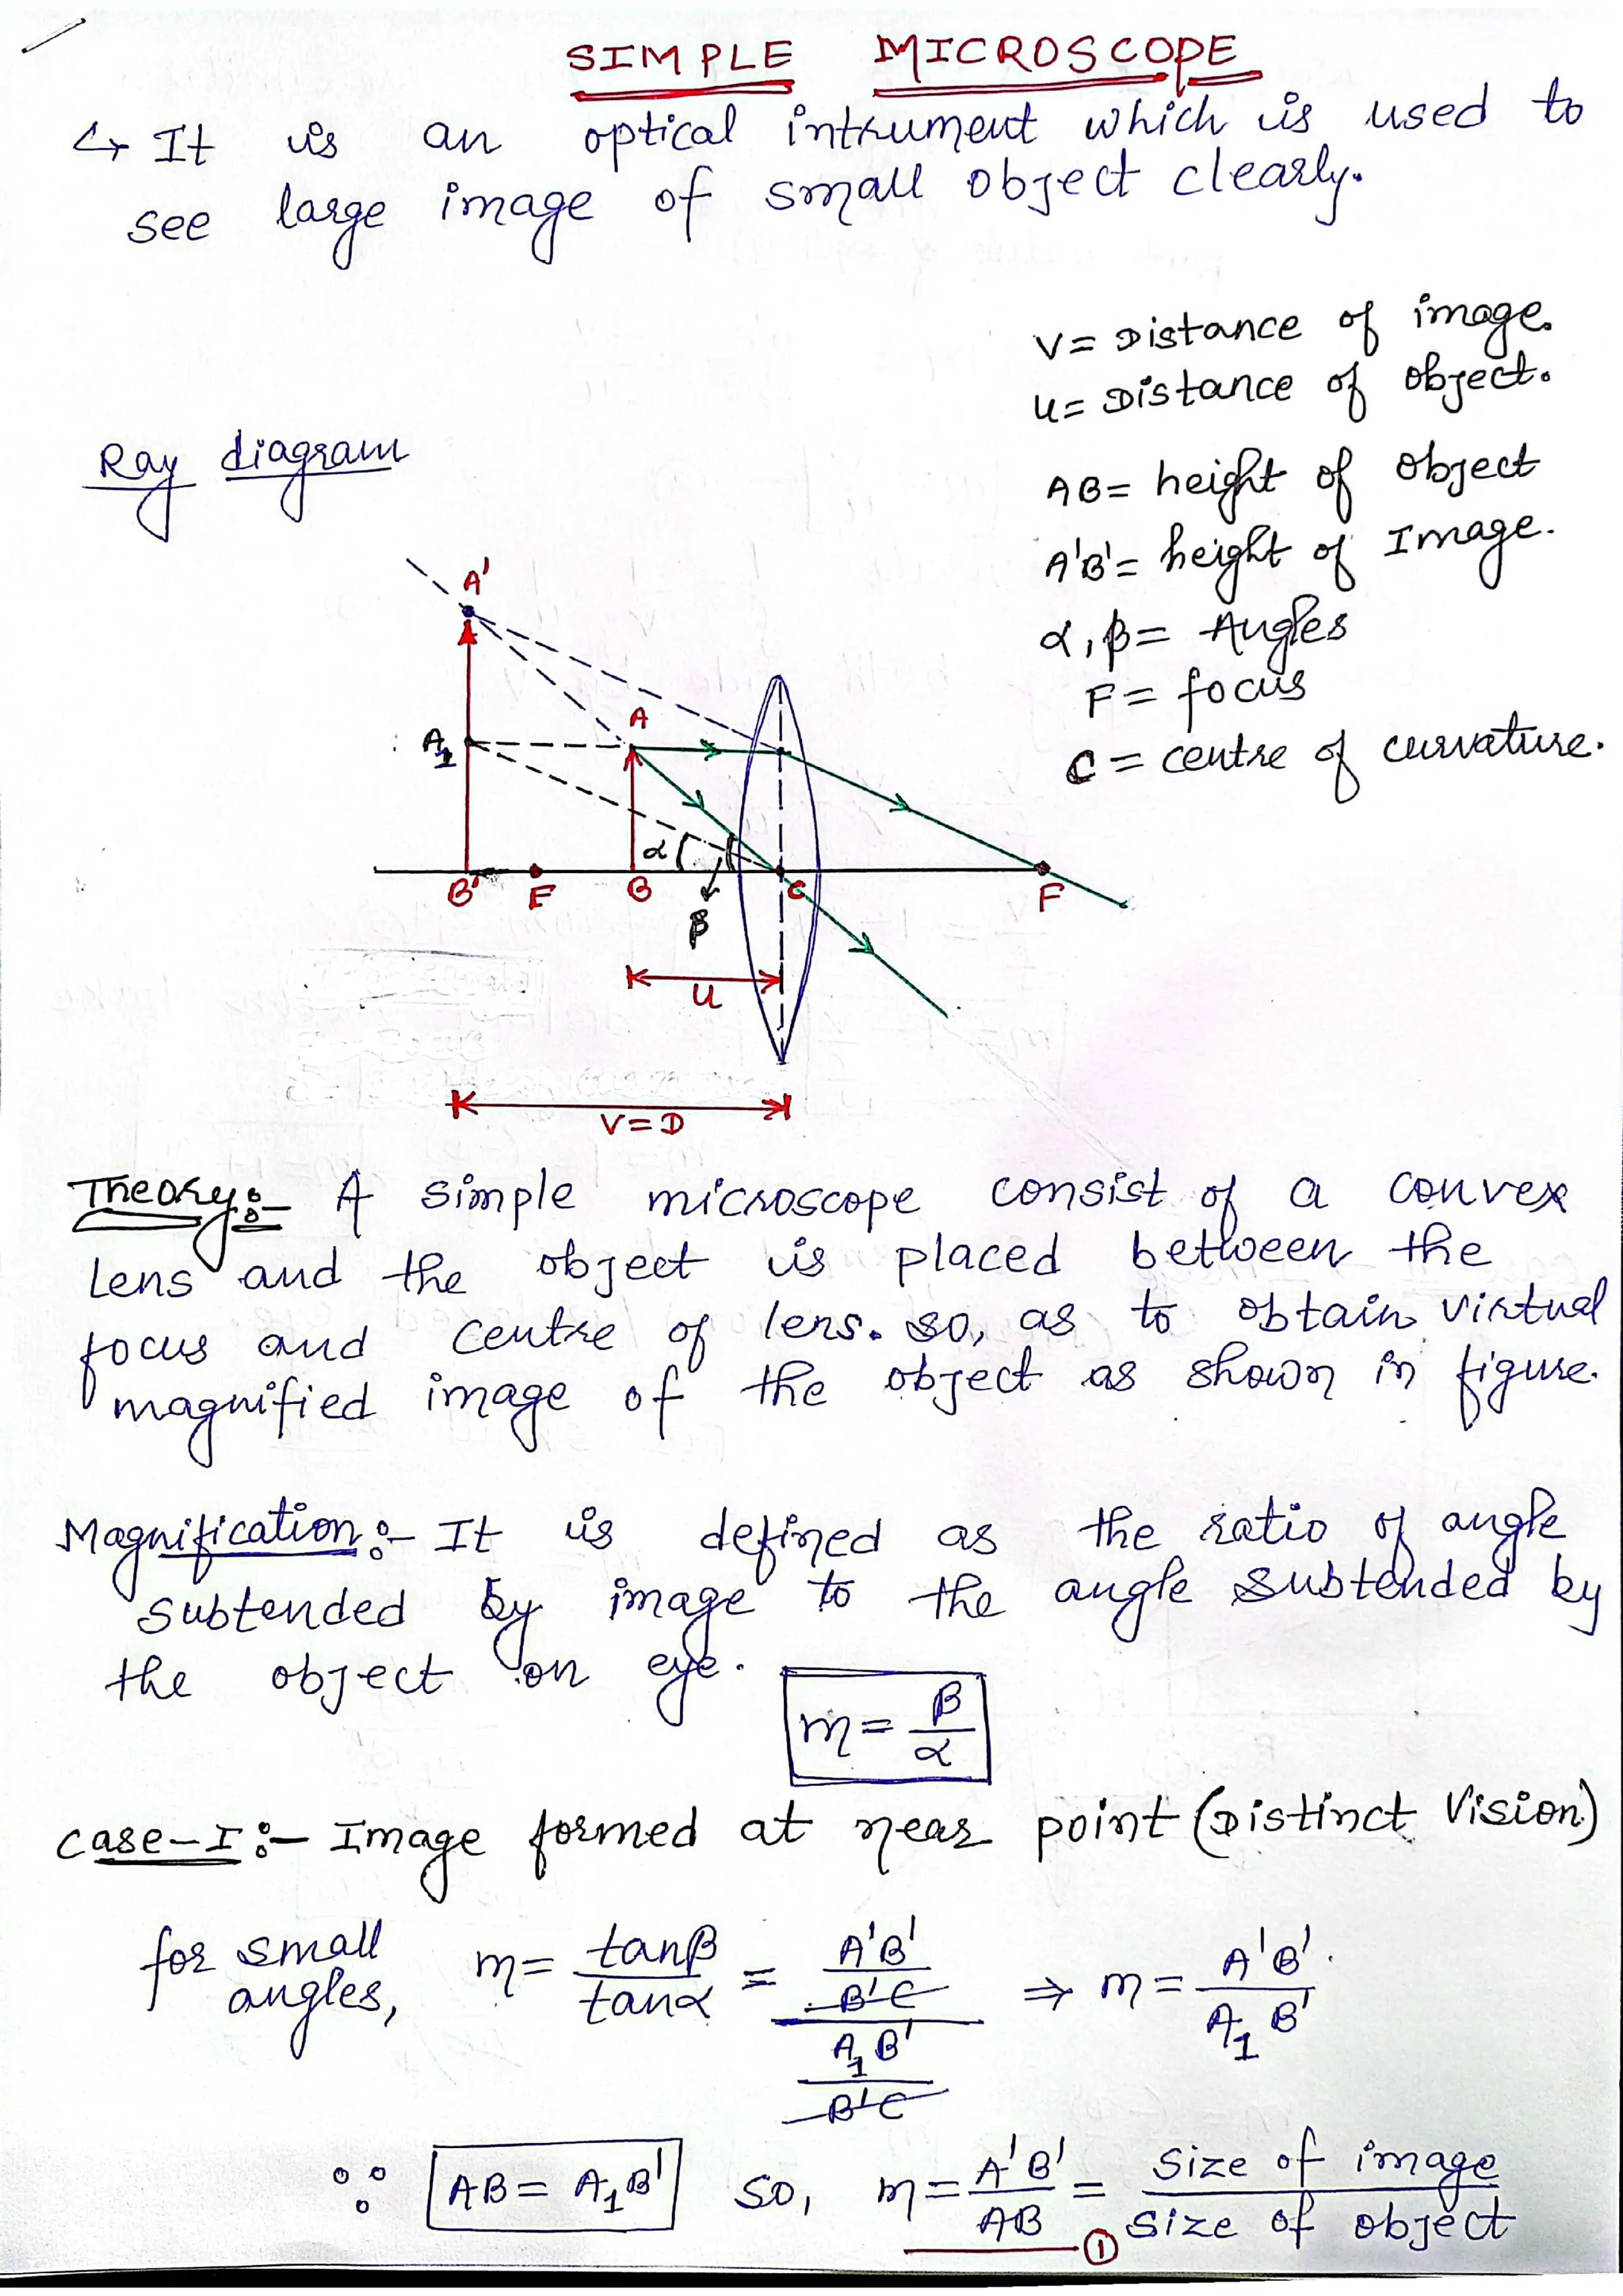 SIMPLE MICROSCOPE
↳ It is an optical intrument which is used to
see large image of small object clearly.
V = Distance of image.
u = Distance of object.
Ray diagram
AB = height of object
A'B' = height of Image.
α, β = Angles
F = focus
C = centre of curvature.
A'
A₁
A
α
B'
F
B
β
C
F
u
V = D
Theory:- A simple microscope consist of a convex
lens and the object is placed between the
focus and centre of lens. so, as to obtain virtual
magnified image of the object as shown in figure.
Magnification:- It is defined as the ratio of angle
subtended by image to the angle subtended by
the object on eye.
m = β/α
case-I:- Image formed at near point (Distinct Vision)
for small angles, m = tanβ/tanα = (A'B'/B'C)/(A₁B'/B'C) ⇒ m = A'B'/A₁B'
∵ AB = A₁B' so, m = A'B'/AB = Size of image/Size of object
①